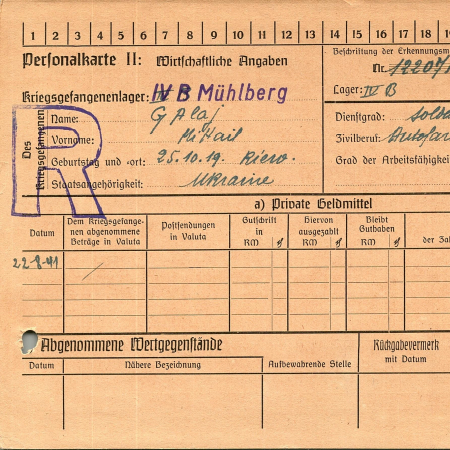 1 2 3 4 5 6 7 8 9 10 11 12 13 14 15 16 17 18 19
Personalkarte II: Wirtschaftliche Angaben
Beschriftung der Erkennungsm
Nr. 12207/
Kriegsgefangenenlager: IV B Mühlberg
Lager: IV B
Des Kriegsgefangenen
Name: Galaj
Dienstgrad: Solda
Vorname: Michail
Zivilberuf: Autofar
Geburtstag und -ort: 25.10.19. Kiew.
Grad der Arbeitsfähigkeit
Staatsangehörigkeit: Ukraine
R
a) Private Geldmittel
Datum
Dem Kriegsgefangenen abgenommene Beträge in Valuta
Postsendungen in Valuta
Gutschrift in RM ₰
Hiervon ausgezahlt RM ₰
Bleibt Guthaben RM ₰
der Zah
22-8-41 /
Abgenommene Wertgegenstände
Rückgabevermerk mit Datum
Datum
Nähere Bezeichnung
Aufbewahrende Stelle